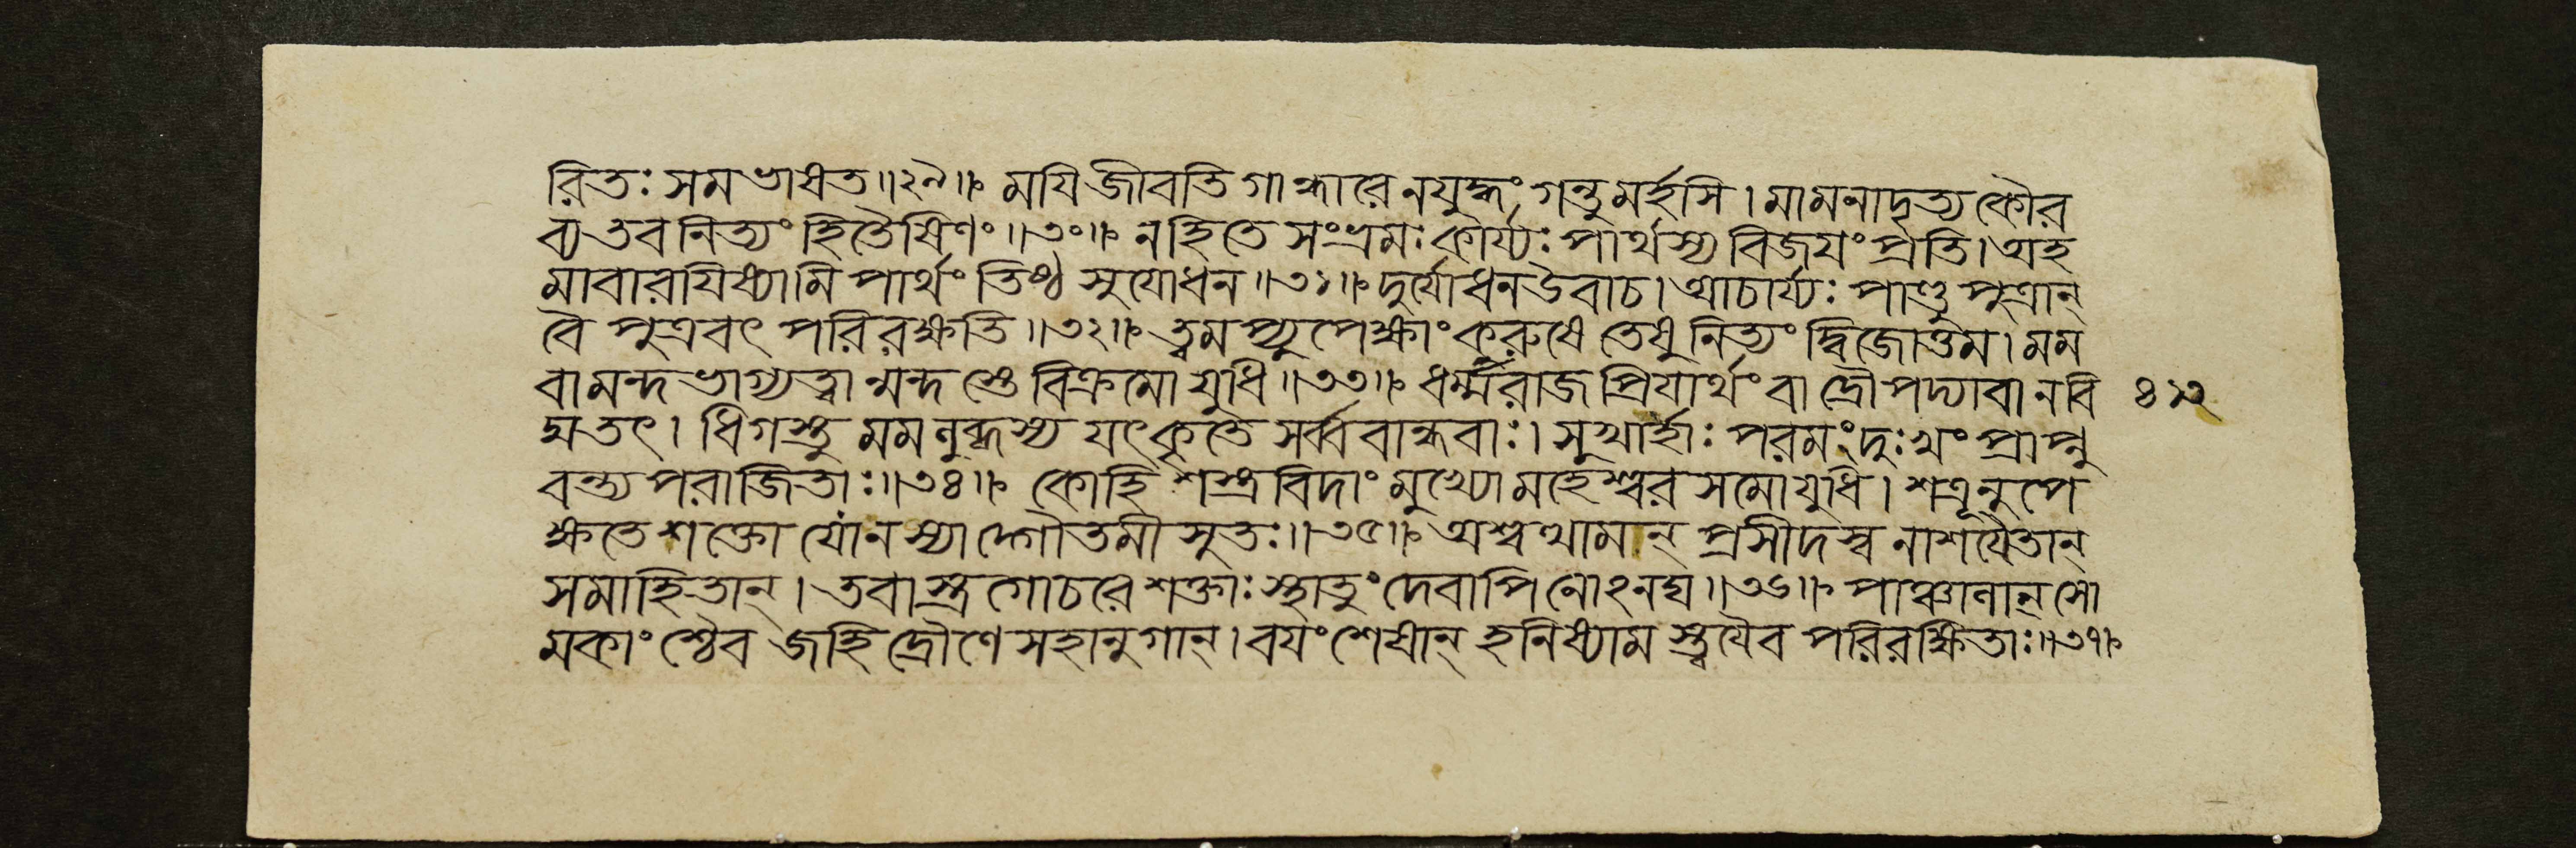 রিতঃ সমভাষত॥২৯॥ ময়ি জীবতি গান্ধারে ন যুদ্ধং গন্তুমর্হসি। মামনাদৃত্য কৌর
ব্য তব নিত্যং হিতৈষিণং॥৩০॥ নহি তে সংভ্রমঃ কার্য্যঃ পার্থস্য বিজয়ং প্রতি। অহ
মাবারয়িষ্যামি পার্থং তিষ্ঠ সুযোধন॥৩১॥ দুর্যোধন উবাচ। আচার্য্যঃ পাণ্ডুপুত্রান্
বৈ পুত্রবৎ পরিরক্ষতি॥৩২॥ ত্বমপ্যুপেক্ষাং কুরুষে তেষু নিত্যং দ্বিজোত্তম। মম
বা মন্দভাগ্যত্বান্মন্দস্তে বিক্রমো যুধি॥৩৩॥ ধর্ম্মরাজপ্রিয়ার্থং বা দ্রৌপদ্যা বা ন বি ৪১২
দ্ম তৎ। ধিগস্তু মম লুব্ধস্য যৎকৃতে সর্ব্ববান্ধবাঃ। সুখার্হাঃ পরমং দুঃখং প্রাপ্নু
বন্ত্যপরাজিতাঃ॥৩৪॥ কো হি শস্ত্রবিদাং মুখ্যো মহেশ্বরসমো যুধি। শত্রূনুপে
ক্ষতে শক্তো যো ন স্যাদ্গৌতমীসুতঃ॥৩৫॥ অশ্বত্থামান্ প্রসীদস্ব নাশয়ৈতান্
সমাহিতান্। তবাস্ত্রগোচরে শক্তাঃ স্থাতুং দেবাপি নোঽনঘ॥৩৬॥ পাঞ্চালান্ সো
মকাংশ্চৈব জহি দ্রৌণে সহানুগান্। বয়ং শেষান্ হনিষ্যামস্ত্বয়ৈব পরিরক্ষিতাঃ॥৩৭॥